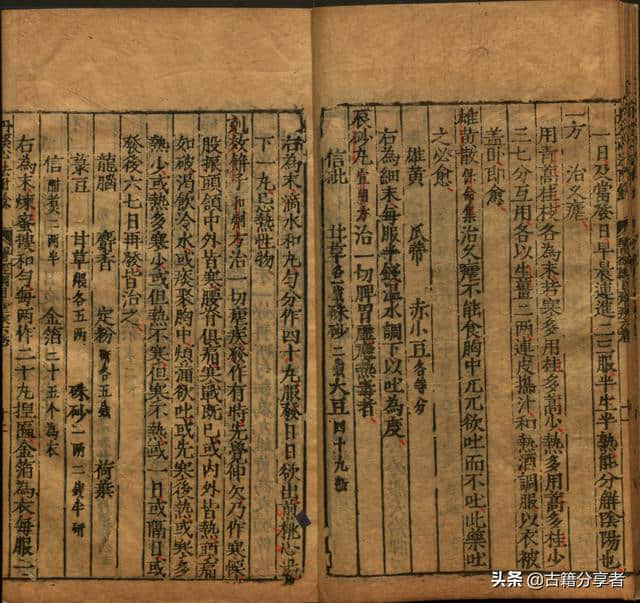 一日及當發日早晨連進二三服半生半熟能分解陰陽也
一方 治久瘧
用青蒿桂枝各為末若寒多用桂多蒿少熱多用蒿多桂少
三七分互用各以生薑二兩連皮搗汁和熱酒調服以衣被
蓋卧即愈
雄黃散 治久瘧不能食胸中兀兀欲吐而不吐此藥吐
之必愈
雄黃 瓜蒂 赤小豆各等分
右為細末每服半錢溫水調下以吐為度
辰砂丸 治一切脾胃虛瘧熱毒者
信砒 甘草 朱砂二錢 大豆四十九粒
右為末滴水和丸勻分作四十九服發日日欲出前桃心湯
下一丸已熱性物
剋效餅子 和劑方治一切瘧疾發作有時先覺伸欠乃作寒慄
股振頭頷中外皆寒腰脊俱痛寒戰既已或內外皆熱頭痛
如破渴飲冷水或痰聚胸中煩滿欲吐或先寒後熱或寒
熱少或熱多寒少或但熱不寒但寒不熱或一日或隔日
發後六七日再發皆治之
龍腦 麝香 定粉 荷葉
菉豆 甘草各五兩 朱砂二兩二錢半研
信醋煮二兩半 金箔二十五个為衣
右為末煉蜜搜和勻每兩作二十九捏匾金箔為衣每服一
古籍分享者
头条 @古籍分享者